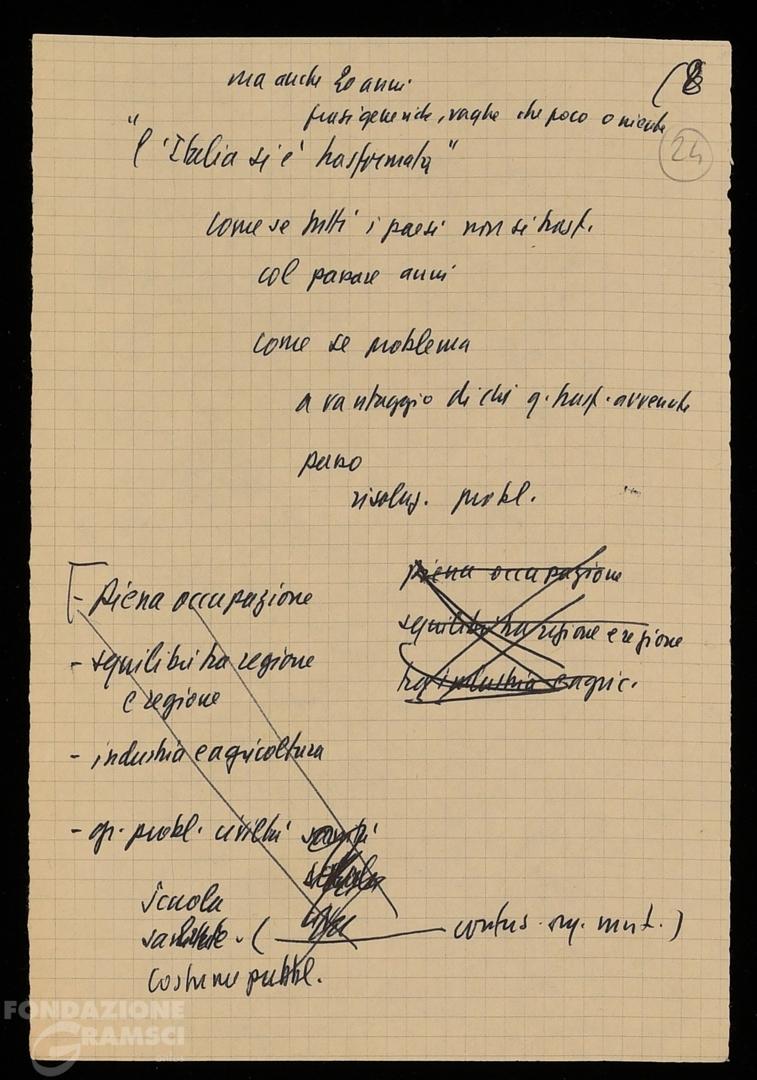 ma anche 20 anni (8
frasi generiche, vaghe che poco o niente
"l'Italia si è trasformata" 24
come se tutti i paesi non si trasf.
col passare anni
come se problema
a vantaggio di chi q. trasf. avvenute
perso
risoluz. probl.
- piena occupazione
piena occupazione
squilibri tra regione e regione
- squilibri tra regione
e regione
tra industria e agric.
- industria e agricoltura
- gr. probl. civiltà
scuola
( contus. org. mut. )
costume pubbl.
FONDAZIONE
GRAMSCI